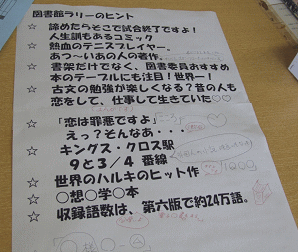 図書館ラリーのヒント
☆ 諦めたらそこで試合終了ですよ！
人生訓もあるコミック
☆ 熱血のテニスプレイヤー。
あつ～いあの人の著作。
☆ 書架だけでなく、図書委員おすすめ
本のテーブルにも注目！世界一！
☆ 古文の勉強が楽しくなる？昔の人も
恋をして、仕事して生きていた○○
☆ 「恋は罪悪ですよ」
えっ？そんなあ・・・
☆ キングス・クロス駅
９と３／４ 番線
☆ 世界のハルキのヒット作
☆ ○想○学○本
☆ 「収録語数は、第六版で約24万語。